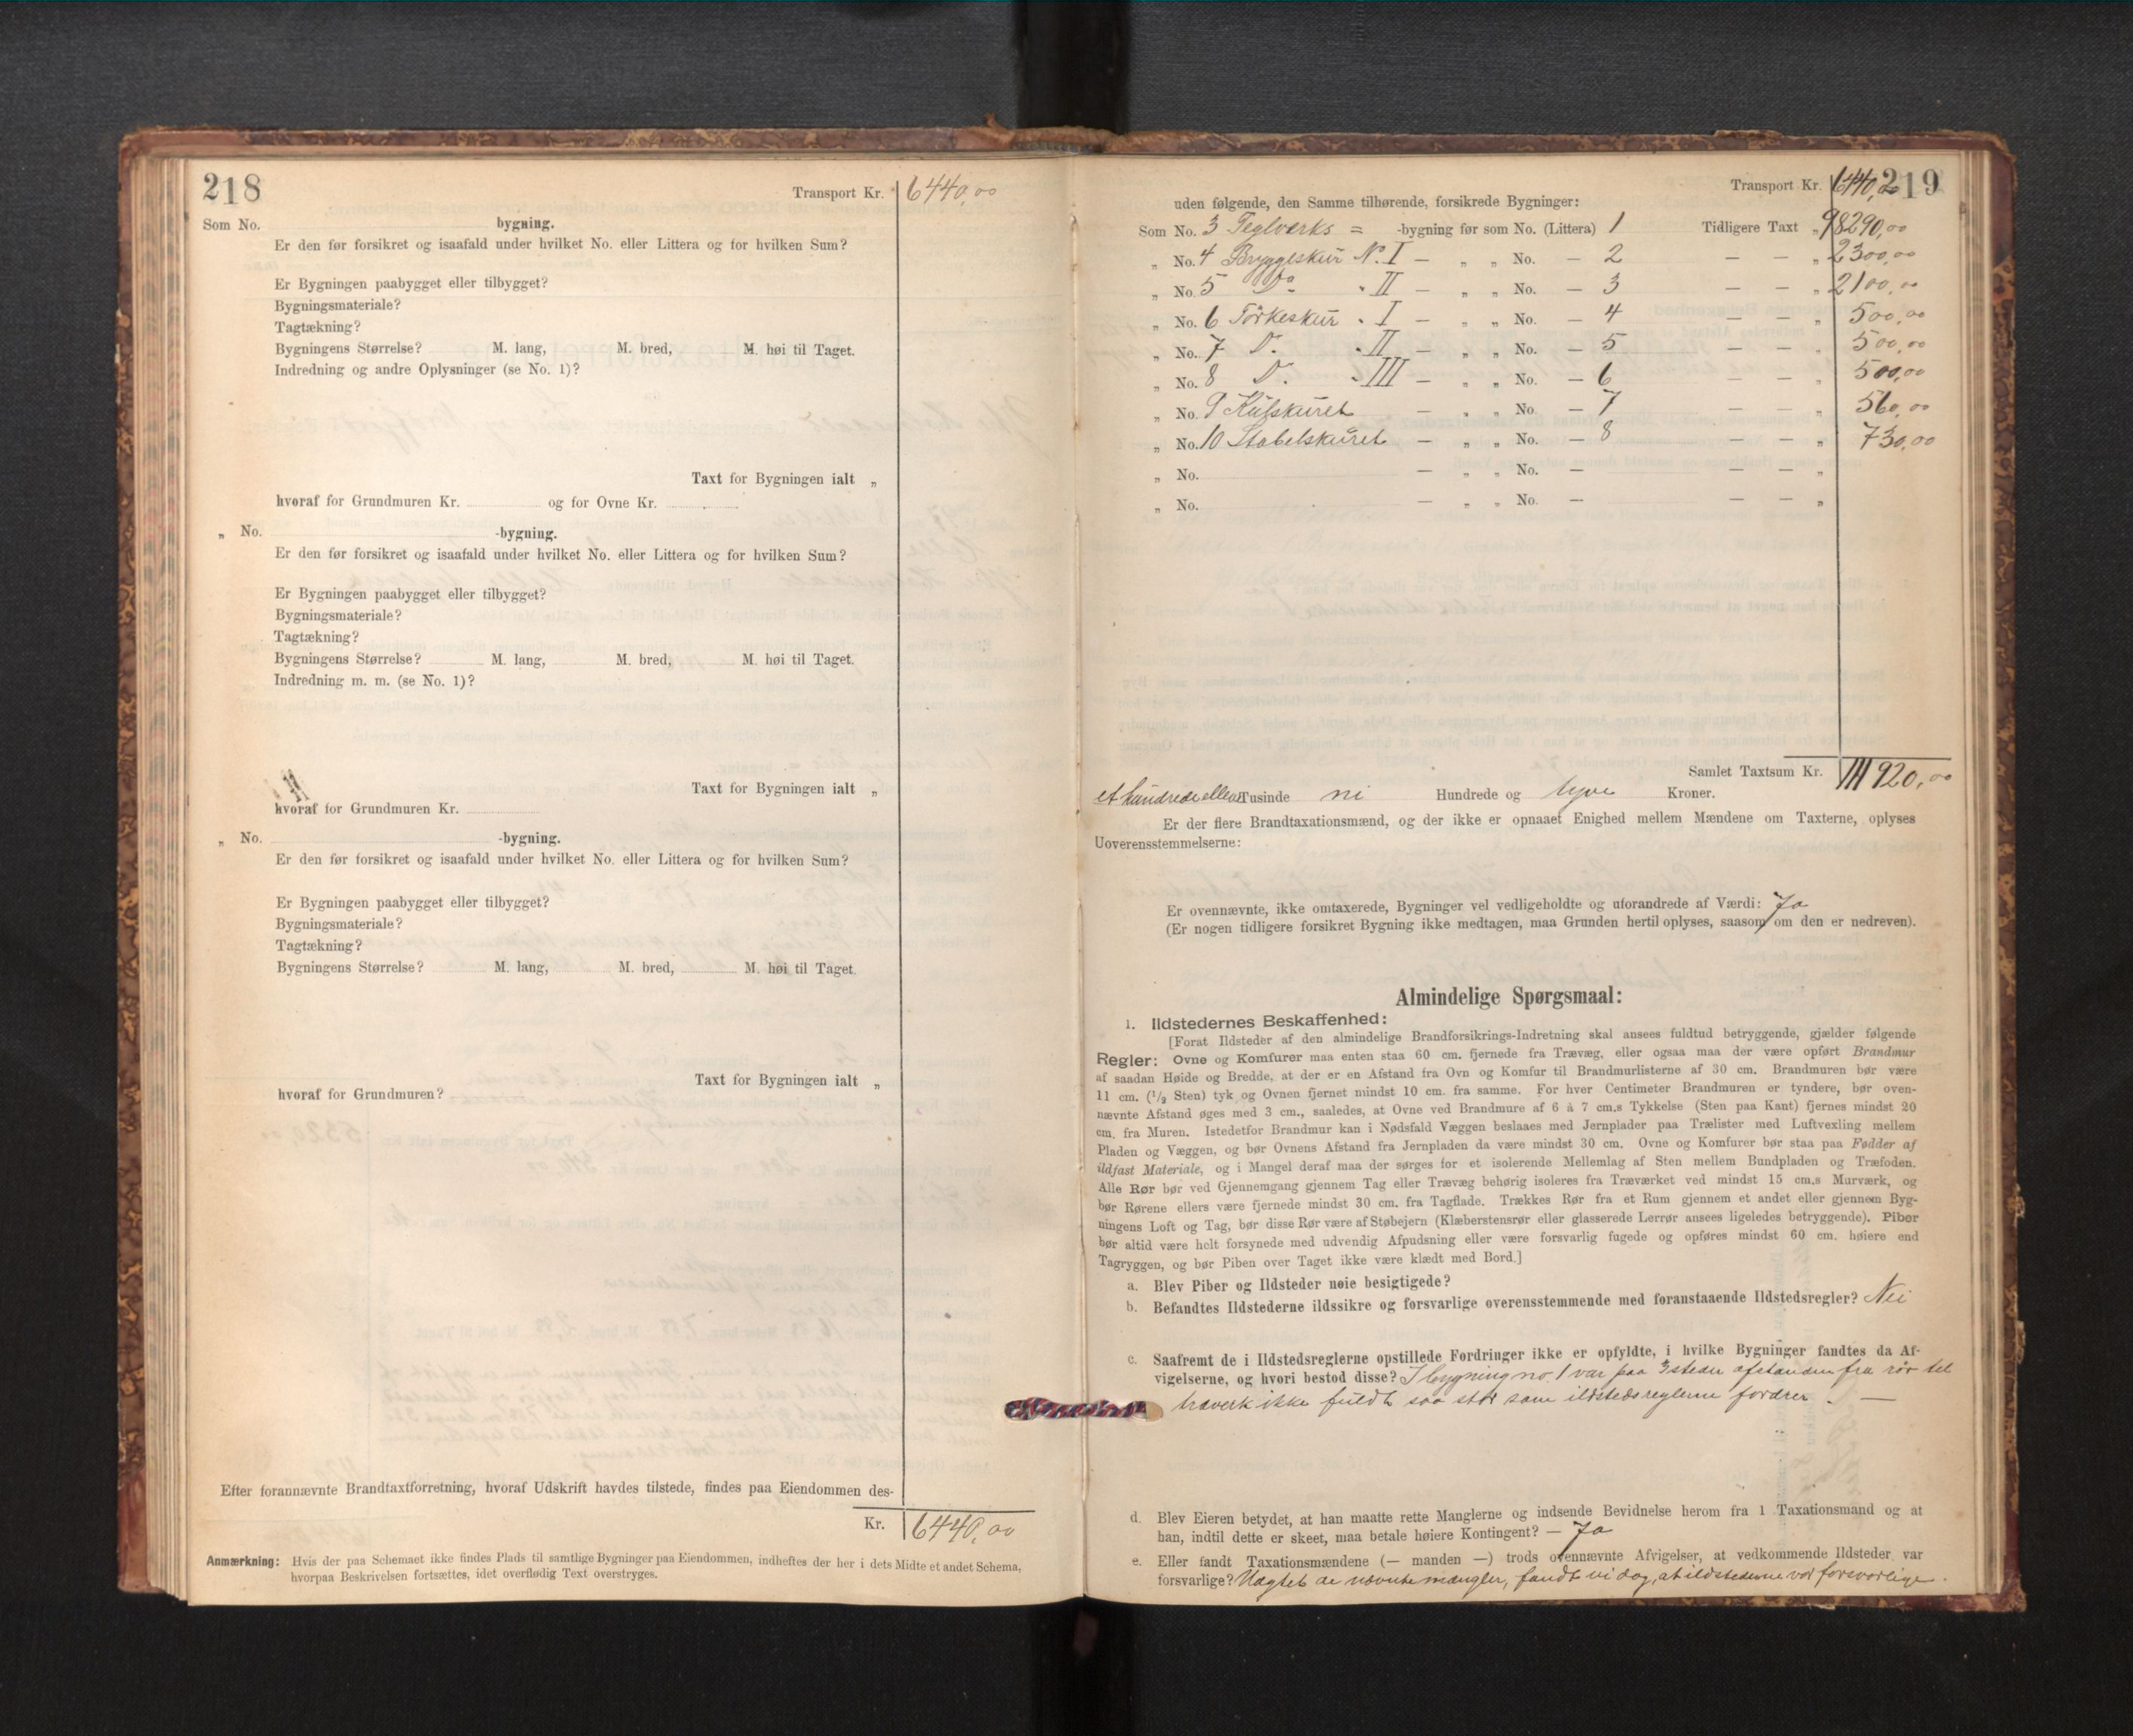 218
Transport Kr. 6440,00
Som No. bygning.
Er den før forsikret og isaafald under hvilket No. eller Littera og for hvilken Sum?
Er Bygningen paabygget eller tilbygget?
Bygningsmateriale?
Tagtækning?
Bygningens Størrelse? M. lang, M. bred, M. høi til Taget.
Indredning og andre Oplysninger (se No. 1)?
Taxt for Bygningen ialt „
hvoraf for Grundmuren Kr. og for Ovne Kr.
„ No. -bygning.
Er den før forsikret og isaafald under hvilket No. eller Littera og for hvilken Sum?
Er Bygningen paabygget eller tilbygget?
Bygningsmateriale?
Tagtækning?
Bygningens Størrelse? M. lang, M. bred, M. høi til Taget.
Indredning m. m. (se No. 1)?
Taxt for Bygningen ialt „
hvoraf for Grundmuren Kr.
„ No. -bygning.
Er den før forsikret og isaafald under hvilket No. eller Littera og for hvilken Sum?
Er Bygningen paabygget eller tilbygget?
Bygningsmateriale?
Tagtækning?
Bygningens Størrelse? M. lang, M. bred, M. høi til Taget.
Taxt for Bygningen ialt „
hvoraf for Grundmuren?
Efter forannævnte Brandtaxtforretning, hvoraf Udskrift havdes tilstede, findes paa Eiendommen des-
Kr. 6440,00
Anmærkning: Hvis der paa Schemaet ikke findes Plads til samtlige Bygninger paa Eiendommen, indheftes der her i dets Midte et andet Schema,
hvorpaa Beskrivelsen fortsættes, idet overflødig Text overstryges.
219
Transport Kr. 6440,00
uden følgende, den Samme tilhørende, forsikrede Bygninger:
Som No. 3 Teglværks = -bygning før som No. (Littera) 1 Tidligere Taxt „ 98290,00
„ No. 4 Bryggeskur No. I — „ „ No. — 2 — — „ 2300,00
„ No. 5 Do „ II — „ „ No. — 3 — — „ 2100,00
„ No. 6 Törkeskur „ I — „ „ No. — 4 — — „ 500,00
„ No. 7 D. „ II — „ „ No. — 5 — — „ 500,00
„ No. 8 D. „ III — „ „ No. — 6 — — „ 500,00
„ No. 9 Kulskuret — „ „ No. — 7 — — „ 560,00
„ No. 10 Stabelskuret — „ „ No. — 8 — — „ 730,00
„ No. — „ „ No. — — — „
„ No. — „ „ No. — — — „
Samlet Taxtsum Kr. 111920,00
et hundrede elleve Tusinde ni Hundrede og tyve Kroner.
Er der flere Brandtaxationsmænd, og der ikke er opnaaet Enighed mellem Mændene om Taxterne, oplyses
Uoverensstemmelserne:
Er ovennævnte, ikke omtaxerede, Bygninger vel vedligeholdte og uforandrede af Værdi: Ja
(Er nogen tidligere forsikret Bygning ikke medtagen, maa Grunden hertil oplyses, saasom om den er nedreven).
Almindelige Spørgsmaal:
1. Ildstedernes Beskaffenhed:
[Forat Ildsteder af den almindelige Brandforsikrings-Indretning skal ansees fuldtud betryggende, gjælder følgende
Regler: Ovne og Komfurer maa enten staa 60 cm. fjernede fra Trævæg, eller ogsaa maa der være opført Brandmur
af saadan Høide og Bredde, at der er en Afstand fra Ovn og Komfur til Brandmurlisterne af 30 cm. Brandmuren bør være
11 cm. (1/2 Sten) tyk og Ovnen fjernet mindst 10 cm. fra samme. For hver Centimeter Brandmuren er tyndere, bør oven-
nævnte Afstand øges med 3 cm., saaledes, at Ovne ved Brandmure af 6 à 7 cm.s Tykkelse (Sten paa Kant) fjernes mindst 20
cm. fra Muren. Istedetfor Brandmur kan i Nødsfald Væggen beslaaes med Jernplader paa Trælister med Luftvexling mellem
Pladen og Væggen, og bør Ovnens Afstand fra Jernpladen da være mindst 30 cm. Ovne og Komfurer bør staa paa Fødder af
ildfast Materiale, og i Mangel deraf maa der sørges for et isolerende Mellemlag af Sten mellem Bundpladen og Træfoden.
Alle Rør bør ved Gjennemgang gjennem Tag eller Trævæg behørig isoleres fra Træværket ved mindst 15 cm.s Murværk, og
bør Rørene ellers være fjernede mindst 30 cm. fra Tagflade. Trækkes Rør fra et Rum gjennem et andet eller gjennem Byg-
ningens Loft og Tag, bør disse Rør være af Støbejern (Klæberstensrør eller glasserede Lerrør ansees ligeledes betryggende). Piber
bør altid være helt forsynede med udvendig Afpudsning eller være forsvarlig fugede og opføres mindst 60 cm. høiere end
Tagryggen, og bør Piben over Taget ikke være klædt med Bord.]
a. Blev Piber og Ildsteder nøie besigtigede?
b. Befandtes Ildstederne ildssikre og forsvarlige overensstemmende med foranstaaende Ildstedsregler? Nei
c. Saafremt de i Ildstedsreglerne opstillede Fordringer ikke er opfyldte, i hvilke Bygninger fandtes da Af-
vigelserne, og hvori bestod disse? I bygning no. 1 var paa 3 steder afstanden fra rör til
træverk ikke fuldt saa stor som ildstedsreglerne fordrer. —
d. Blev Eieren betydet, at han maatte rette Manglerne og indsende Bevidnelse herom fra 1 Taxationsmand og at
han, indtil dette er skeet, maa betale høiere Kontingent? — Ja
e. Eller fandt Taxationsmændene (— manden —) trods ovennævnte Afvigelser, at vedkommende Ildsteder var
forsvarlige? Uagtet de nævnte mangler, fandt vi dog, at ildstederne var forsvarlige.